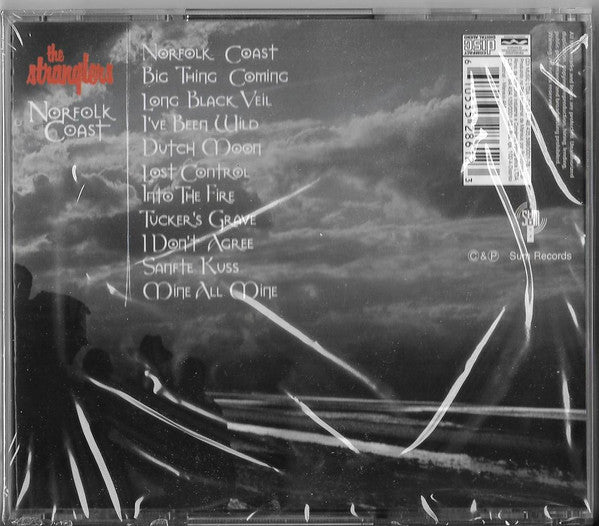 the
stranglers
Norfolk
Coast
Norfolk Coast
Big Thing Coming
Long Black Veil
I've Been Wild
Dutch Moon
Lost Control
Into The Fire
Tucker's Grave
I Don't Agree
Sanfte Kuss
Mine All Mine
COMPACT
disc
DIGITAL AUDIO
Sum
© & ℗ Sum Records